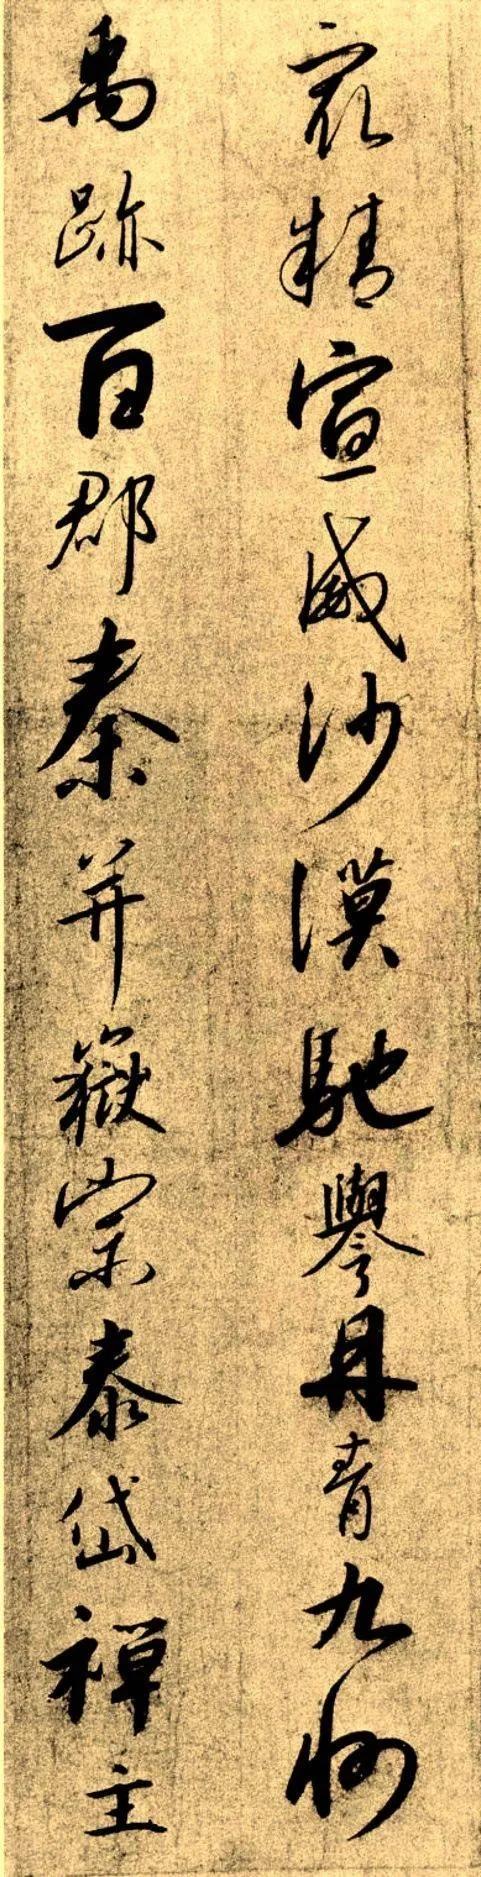 最精宣威沙漠馳譽丹青九州
禹跡百郡秦并嶽宗泰岱禪主